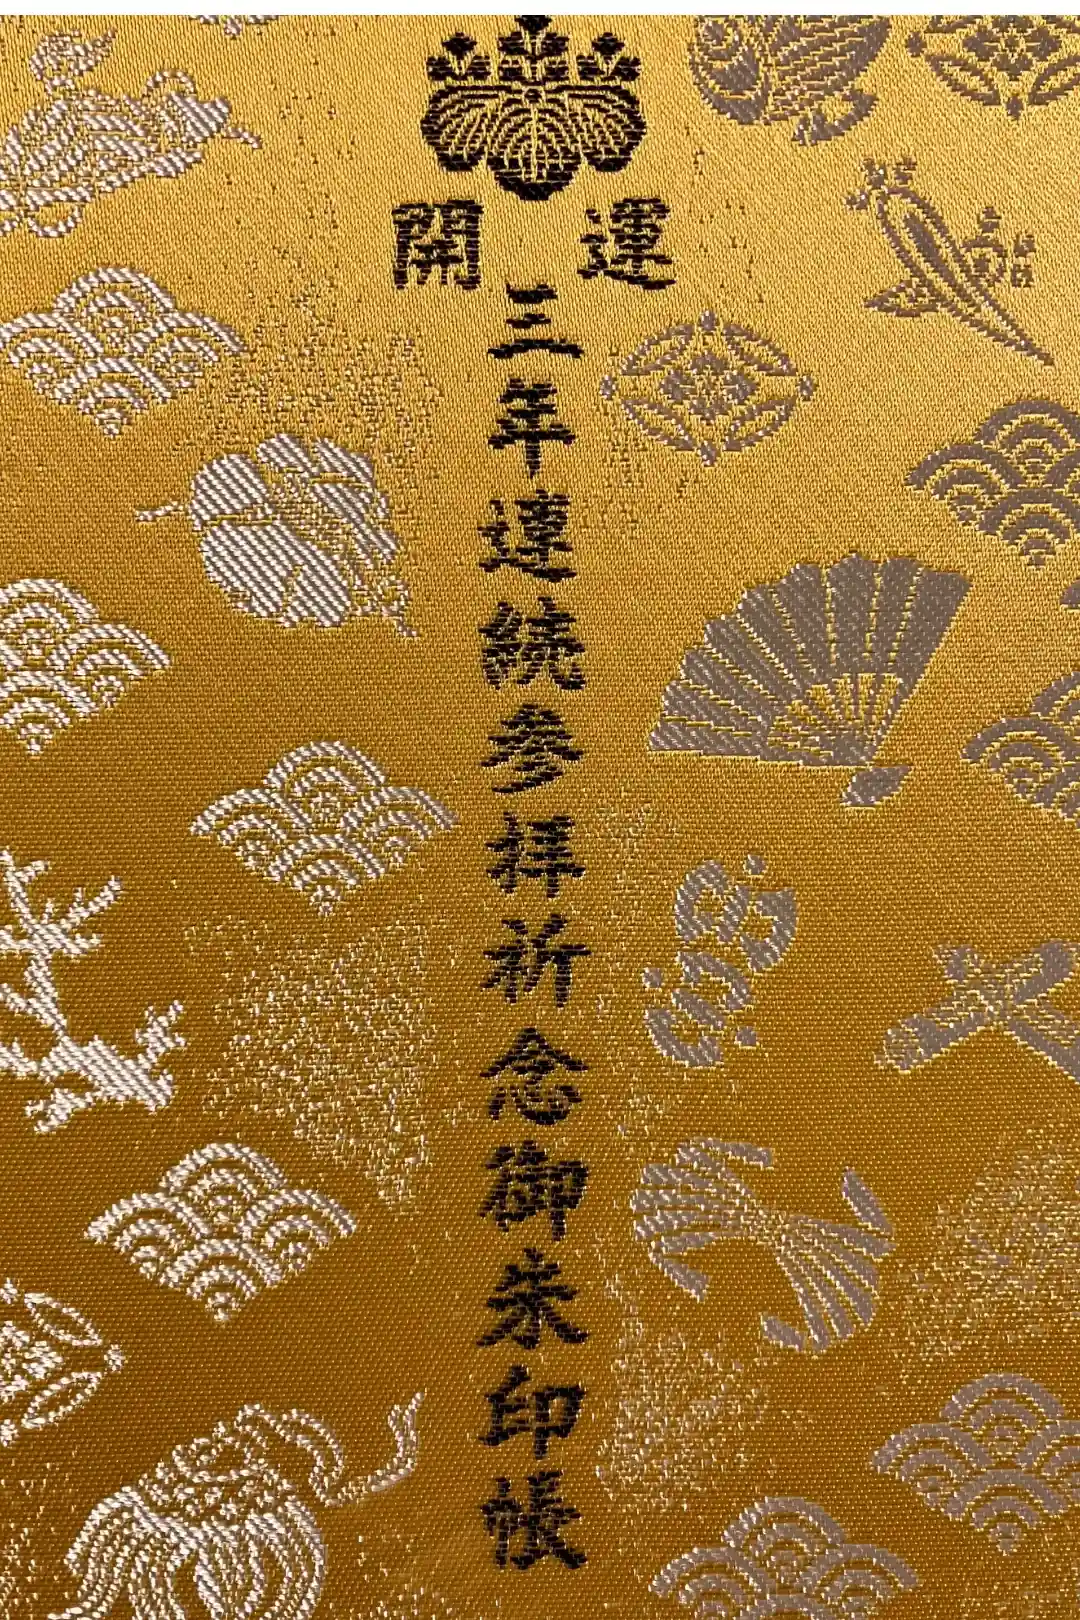 開運
三年連続参拝祈念御朱印帳